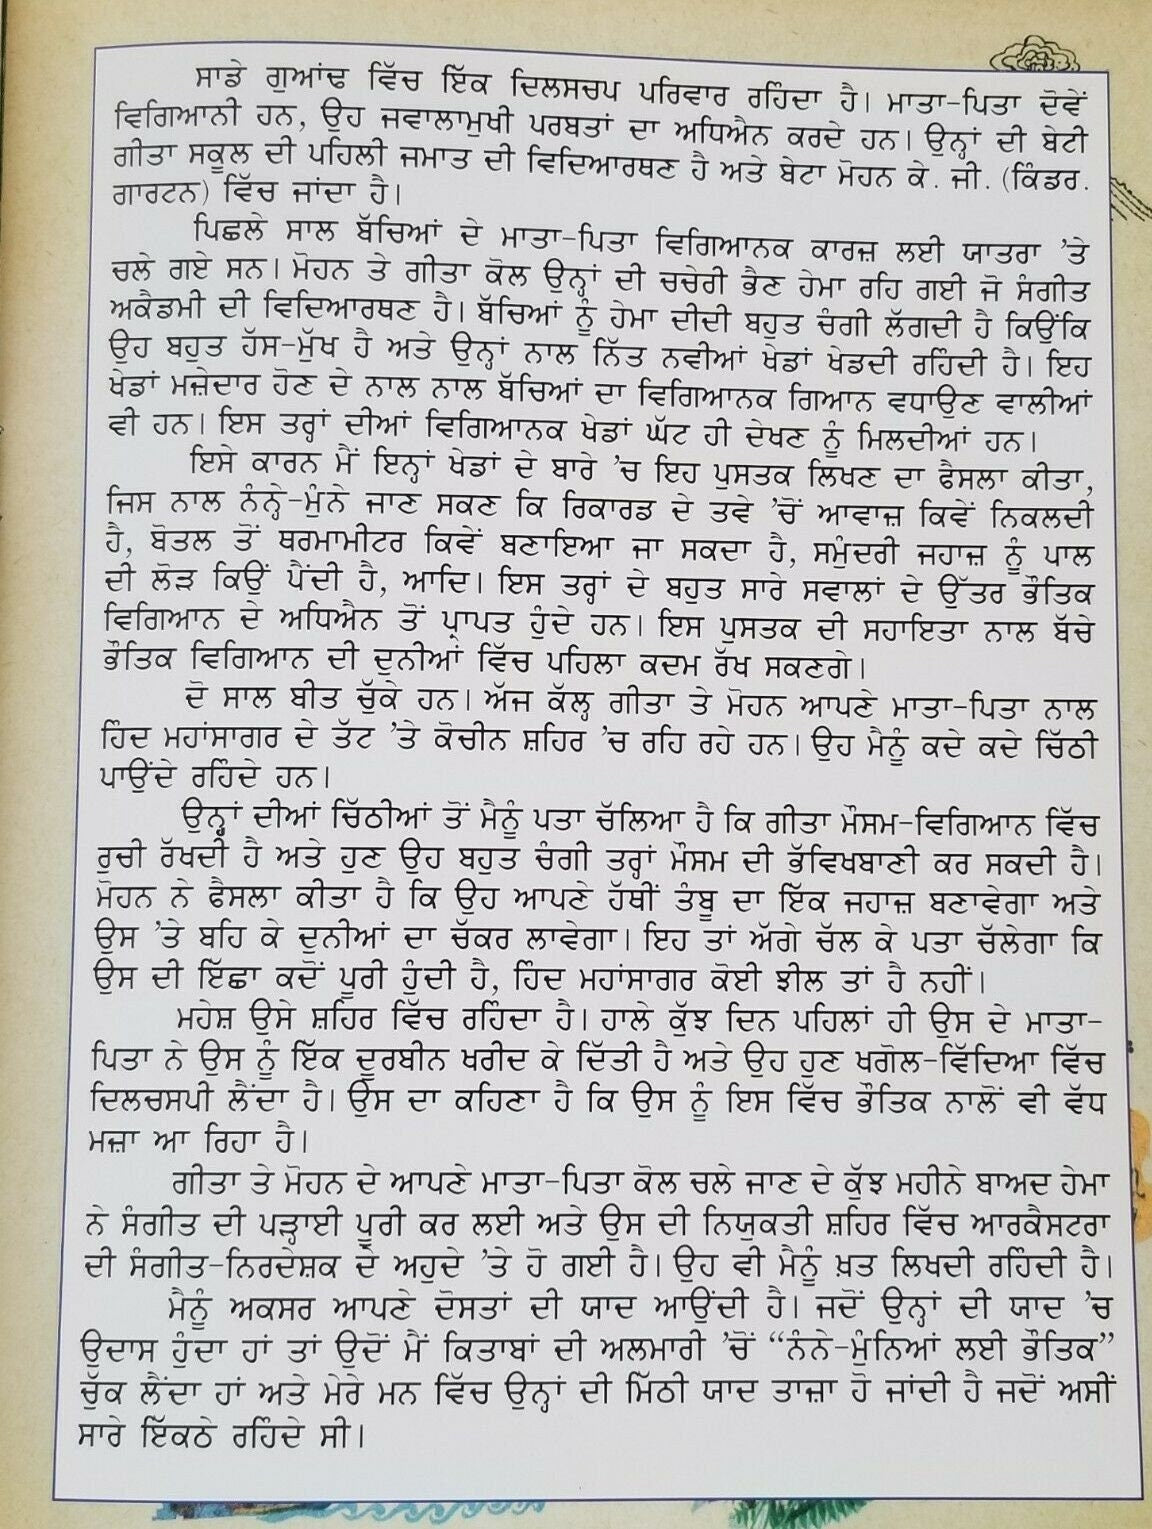 ਸਾਡੇ ਗੁਆਂਢ ਵਿੱਚ ਇੱਕ ਦਿਲਸਚਪ ਪਰਿਵਾਰ ਰਹਿੰਦਾ ਹੈ। ਮਾਤਾ-ਪਿਤਾ ਦੋਵੇਂ
ਵਿਗਿਆਨੀ ਹਨ, ਉਹ ਜਵਾਲਾਮੁਖੀ ਪਰਬਤਾਂ ਦਾ ਅਧਿਐਨ ਕਰਦੇ ਹਨ। ਉਨ੍ਹਾਂ ਦੀ ਬੇਟੀ
ਗੀਤਾ ਸਕੂਲ ਦੀ ਪਹਿਲੀ ਜਮਾਤ ਦੀ ਵਿਦਿਆਰਥਣ ਹੈ ਅਤੇ ਬੇਟਾ ਮੋਹਨ ਕੇ. ਜੀ. (ਕਿੰਡਰ.
ਗਾਰਟਨ) ਵਿੱਚ ਜਾਂਦਾ ਹੈ।
ਪਿਛਲੇ ਸਾਲ ਬੱਚਿਆਂ ਦੇ ਮਾਤਾ-ਪਿਤਾ ਵਿਗਿਆਨਕ ਕਾਰਜ਼ ਲਈ ਯਾਤਰਾ ’ਤੇ
ਚਲੇ ਗਏ ਸਨ। ਮੋਹਨ ਤੇ ਗੀਤਾ ਕੋਲ ਉਨ੍ਹਾਂ ਦੀ ਚਚੇਰੀ ਭੈਣ ਹੇਮਾ ਰਹਿ ਗਈ ਜੋ ਸੰਗੀਤ
ਅਕੈਡਮੀ ਦੀ ਵਿਦਿਆਰਥਣ ਹੈ। ਬੱਚਿਆਂ ਨੂੰ ਹੇਮਾ ਦੀਦੀ ਬਹੁਤ ਚੰਗੀ ਲੱਗਦੀ ਹੈ ਕਿਉਂਕਿ
ਉਹ ਬਹੁਤ ਹੱਸ-ਮੁੱਖ ਹੈ ਅਤੇ ਉਨ੍ਹਾਂ ਨਾਲ ਨਿੱਤ ਨਵੀਆਂ ਖੇਡਾਂ ਖੇਡਦੀ ਰਹਿੰਦੀ ਹੈ। ਇਹ
ਖੇਡਾਂ ਮਜ਼ੇਦਾਰ ਹੋਣ ਦੇ ਨਾਲ ਨਾਲ ਬੱਚਿਆਂ ਦਾ ਵਿਗਿਆਨਕ ਗਿਆਨ ਵਧਾਉਣ ਵਾਲੀਆਂ
ਵੀ ਹਨ। ਇਸ ਤਰ੍ਹਾਂ ਦੀਆਂ ਵਿਗਿਆਨਕ ਖੇਡਾਂ ਘੱਟ ਹੀ ਦੇਖਣ ਨੂੰ ਮਿਲਦੀਆਂ ਹਨ।
ਇਸੇ ਕਾਰਨ ਮੈਂ ਇਨ੍ਹਾਂ ਖੇਡਾਂ ਦੇ ਬਾਰੇ ’ਚ ਇਹ ਪੁਸਤਕ ਲਿਖਣ ਦਾ ਫੈਸਲਾ ਕੀਤਾ,
ਜਿਸ ਨਾਲ ਨੰਨ੍ਹੇ-ਮੁੰਨੇ ਜਾਣ ਸਕਣ ਕਿ ਰਿਕਾਰਡ ਦੇ ਤਵੇ ’ਚੋਂ ਆਵਾਜ਼ ਕਿਵੇਂ ਨਿਕਲਦੀ
ਹੈ, ਬੋਤਲ ਤੋਂ ਥਰਮਾਮੀਟਰ ਕਿਵੇਂ ਬਣਾਇਆ ਜਾ ਸਕਦਾ ਹੈ, ਸਮੁੰਦਰੀ ਜਹਾਜ਼ ਨੂੰ ਪਾਲ
ਦੀ ਲੋੜ ਕਿਉਂ ਪੈਂਦੀ ਹੈ, ਆਦਿ। ਇਸ ਤਰ੍ਹਾਂ ਦੇ ਬਹੁਤ ਸਾਰੇ ਸਵਾਲਾਂ ਦੇ ਉੱਤਰ ਭੌਤਿਕ
ਵਿਗਿਆਨ ਦੇ ਅਧਿਐਨ ਤੋਂ ਪ੍ਰਾਪਤ ਹੁੰਦੇ ਹਨ। ਇਸ ਪੁਸਤਕ ਦੀ ਸਹਾਇਤਾ ਨਾਲ ਬੱਚੇ
ਭੌਤਿਕ ਵਿਗਿਆਨ ਦੀ ਦੁਨੀਆਂ ਵਿੱਚ ਪਹਿਲਾ ਕਦਮ ਰੱਖ ਸਕਣਗੇ।
ਦੋ ਸਾਲ ਬੀਤ ਚੁੱਕੇ ਹਨ। ਅੱਜ ਕੱਲ੍ਹ ਗੀਤਾ ਤੇ ਮੋਹਨ ਆਪਣੇ ਮਾਤਾ-ਪਿਤਾ ਨਾਲ
ਹਿੰਦ ਮਹਾਂਸਾਗਰ ਦੇ ਤੱਟ ’ਤੇ ਕੋਚੀਨ ਸ਼ਹਿਰ ’ਚ ਰਹਿ ਰਹੇ ਹਨ। ਉਹ ਮੈਨੂੰ ਕਦੇ ਕਦੇ ਚਿੱਠੀ
ਪਾਉਂਦੇ ਰਹਿੰਦੇ ਹਨ।
ਉਨ੍ਹਾਂ ਦੀਆਂ ਚਿੱਠੀਆਂ ਤੋਂ ਮੈਨੂੰ ਪਤਾ ਚੱਲਿਆ ਹੈ ਕਿ ਗੀਤਾ ਮੌਸਮ-ਵਿਗਿਆਨ ਵਿੱਚ
ਰੁਚੀ ਰੱਖਦੀ ਹੈ ਅਤੇ ਹੁਣ ਉਹ ਬਹੁਤ ਚੰਗੀ ਤਰ੍ਹਾਂ ਮੌਸਮ ਦੀ ਭੱਵਿਖਬਾਣੀ ਕਰ ਸਕਦੀ ਹੈ।
ਮੋਹਨ ਨੇ ਫੈਸਲਾ ਕੀਤਾ ਹੈ ਕਿ ਉਹ ਆਪਣੇ ਹੱਥੀਂ ਤੰਬੂ ਦਾ ਇੱਕ ਜਹਾਜ਼ ਬਣਾਵੇਗਾ ਅਤੇ
ਉਸ ’ਤੇ ਬਹਿ ਕੇ ਦੁਨੀਆਂ ਦਾ ਚੱਕਰ ਲਾਵੇਗਾ। ਇਹ ਤਾਂ ਅੱਗੇ ਚੱਲ ਕੇ ਪਤਾ ਚੱਲੇਗਾ ਕਿ
ਉਸ ਦੀ ਇੱਛਾ ਕਦੋਂ ਪੂਰੀ ਹੁੰਦੀ ਹੈ, ਹਿੰਦ ਮਹਾਂਸਾਗਰ ਕੋਈ ਝੀਲ ਤਾਂ ਹੈ ਨਹੀਂ।
ਮਹੇਸ਼ ਉਸੇ ਸ਼ਹਿਰ ਵਿੱਚ ਰਹਿੰਦਾ ਹੈ। ਹਾਲੇ ਕੁੱਝ ਦਿਨ ਪਹਿਲਾਂ ਹੀ ਉਸ ਦੇ ਮਾਤਾ-
ਪਿਤਾ ਨੇ ਉਸ ਨੂੰ ਇੱਕ ਦੂਰਬੀਨ ਖਰੀਦ ਕੇ ਦਿੱਤੀ ਹੈ ਅਤੇ ਉਹ ਹੁਣ ਖਗੋਲ-ਵਿੱਦਿਆ ਵਿੱਚ
ਦਿਲਚਸਪੀ ਲੈਂਦਾ ਹੈ। ਉਸ ਦਾ ਕਹਿਣਾ ਹੈ ਕਿ ਉਸ ਨੂੰ ਇਸ ਵਿੱਚ ਭੌਤਿਕ ਨਾਲੋਂ ਵੀ ਵੱਧ
ਮਜ਼ਾ ਆ ਰਿਹਾ ਹੈ।
ਗੀਤਾ ਤੇ ਮੋਹਨ ਦੇ ਆਪਣੇ ਮਾਤਾ-ਪਿਤਾ ਕੋਲ ਚਲੇ ਜਾਣ ਦੇ ਕੁੱਝ ਮਹੀਨੇ ਬਾਅਦ ਹੇਮਾ
ਨੇ ਸੰਗੀਤ ਦੀ ਪੜ੍ਹਾਈ ਪੂਰੀ ਕਰ ਲਈ ਅਤੇ ਉਸ ਦੀ ਨਿਯੁਕਤੀ ਸ਼ਹਿਰ ਵਿੱਚ ਆਰਕੈਸਟਰਾ
ਦੀ ਸੰਗੀਤ-ਨਿਰਦੇਸ਼ਕ ਦੇ ਅਹੁਦੇ ’ਤੇ ਹੋ ਗਈ ਹੈ। ਉਹ ਵੀ ਮੈਨੂੰ ਖ਼ਤ ਲਿਖਦੀ ਰਹਿੰਦੀ ਹੈ।
ਮੈਨੂੰ ਅਕਸਰ ਆਪਣੇ ਦੋਸਤਾਂ ਦੀ ਯਾਦ ਆਉਂਦੀ ਹੈ। ਜਦੋਂ ਉਨ੍ਹਾਂ ਦੀ ਯਾਦ ’ਚ
ਉਦਾਸ ਹੁੰਦਾ ਹਾਂ ਤਾਂ ਉਦੋਂ ਮੈਂ ਕਿਤਾਬਾਂ ਦੀ ਅਲਮਾਰੀ ’ਚੋਂ “ਨੰਨੇ-ਮੁੰਨਿਆਂ ਲਈ ਭੌਤਿਕ”
ਚੁੱਕ ਲੈਂਦਾ ਹਾਂ ਅਤੇ ਮੇਰੇ ਮਨ ਵਿੱਚ ਉਨ੍ਹਾਂ ਦੀ ਮਿੱਠੀ ਯਾਦ ਤਾਜ਼ਾ ਹੋ ਜਾਂਦੀ ਹੈ ਜਦੋਂ ਅਸੀਂ
ਸਾਰੇ ਇੱਕਠੇ ਰਹਿੰਦੇ ਸੀ।